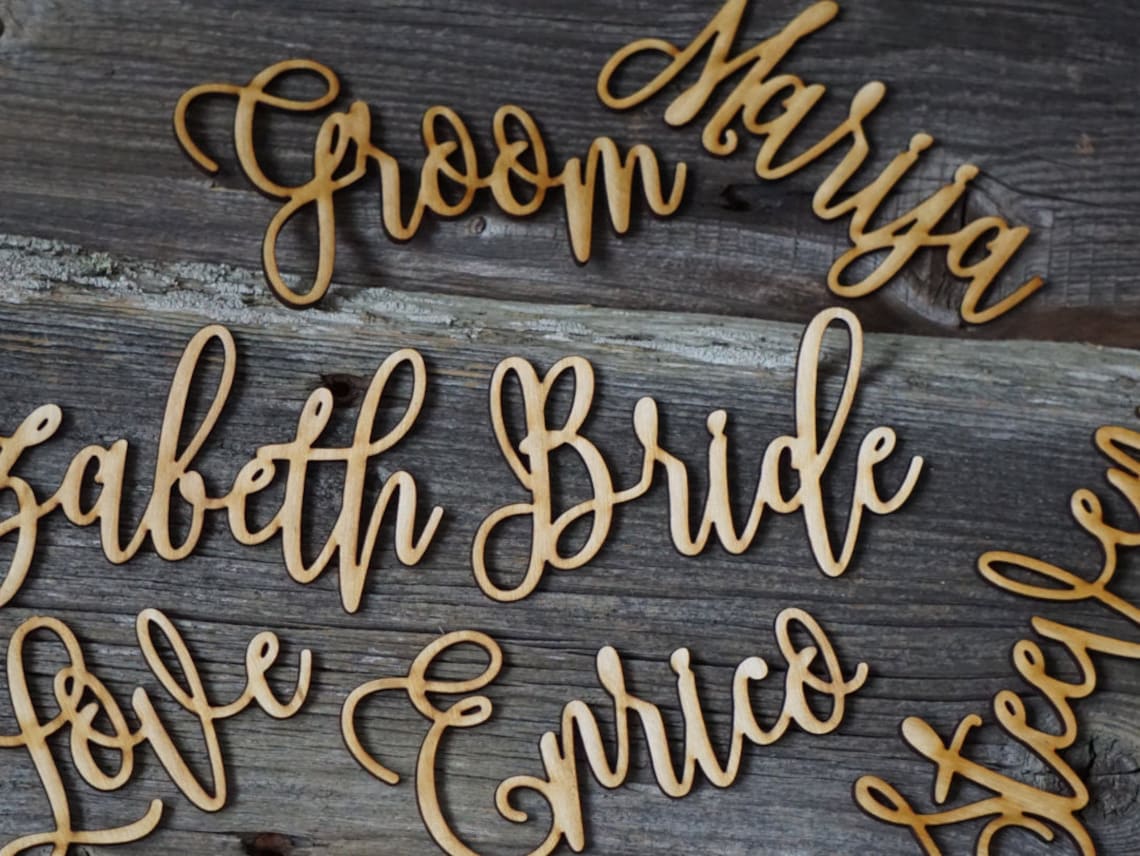 Groom
Marija
zabeth Bride
Love
Enrico
Stephen